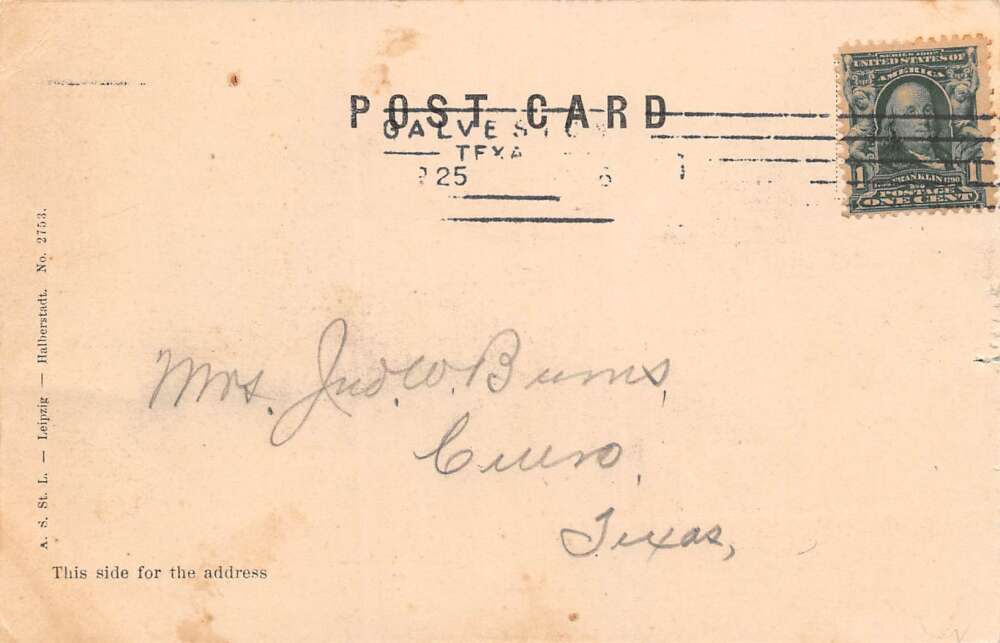 POST CARD
GALVESTON
TEXA
25 6
SERIES 1902
UNITED STATES OF
AMERICA
FRANKLIN 1790
1 1
POSTAGE
ONE CENT
A. S. St. L. — Leipzig — Halberstadt. No. 2753.
Mrs. Jno. W. Burns,
Cuero,
Texas,
This side for the address